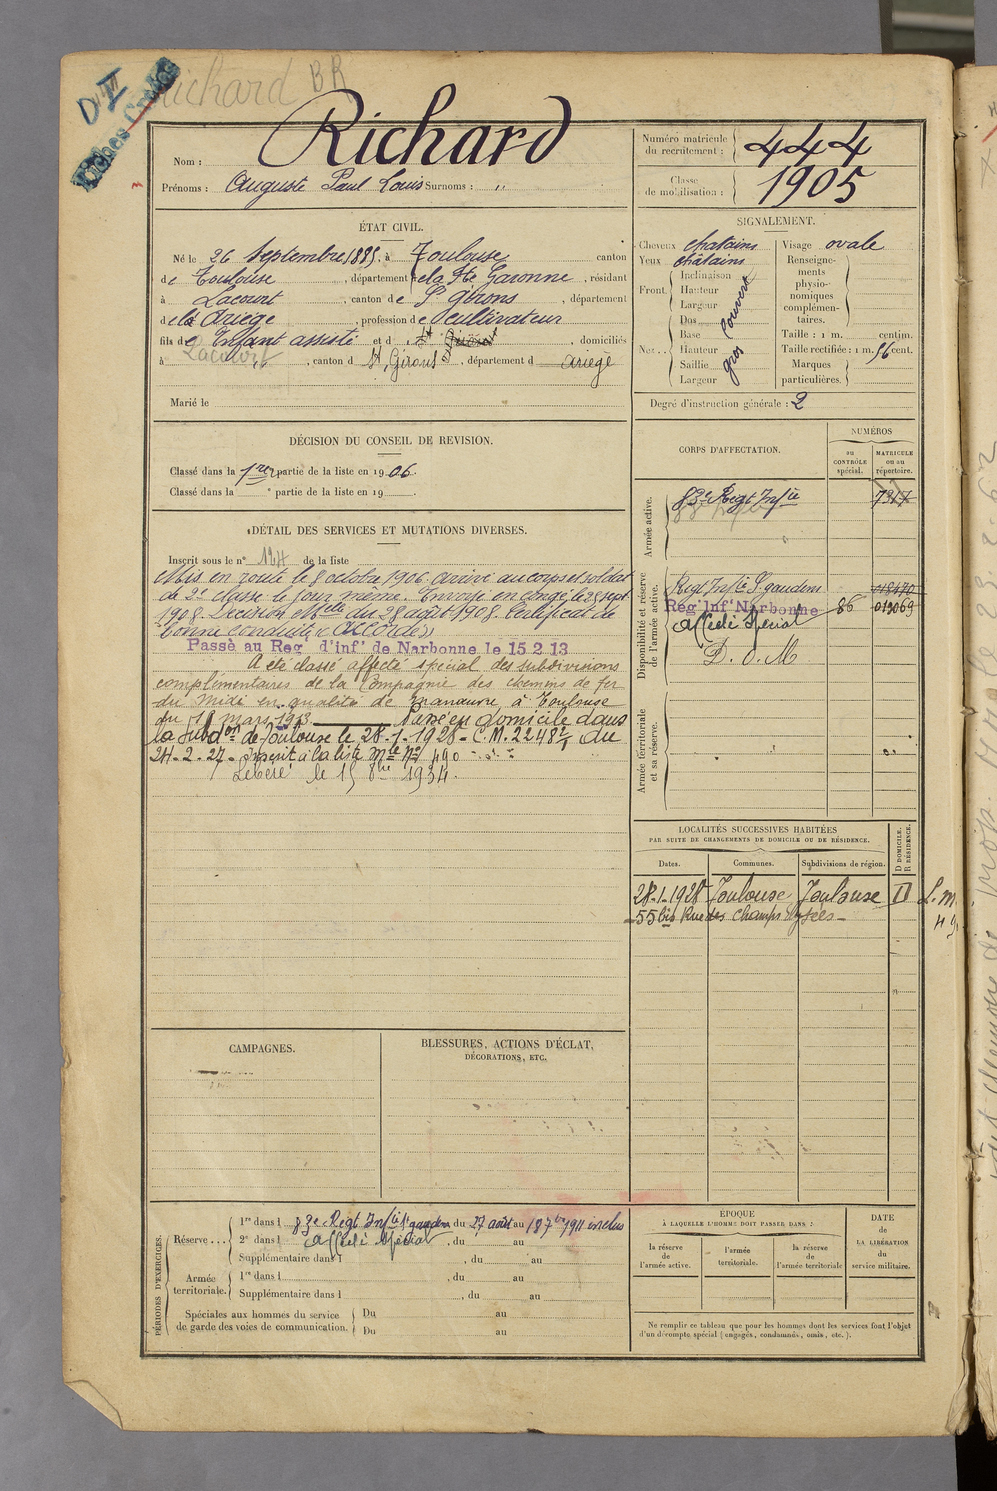 Richard BR
D VI
Fiches
Nom : Richard
Prénoms : Auguste Paul Louis Surnoms : "
Numéro matricule du recrutement : 444
Classe de mobilisation : 1905
ÉTAT CIVIL.
Né le 26 Septembre 1885, à Toulouse canton
de Toulouse, département de la Hte Garonne, résidant
à Lacourt, canton de St Girons, département
de l'Ariège, profession de Cultivateur
fils de Enfant assisté et d , domiciliés
à Lacourt, canton d St Girons, département d Ariège
Marié le
SIGNALEMENT.
Cheveux chatains
Yeux châtains
Front. Inclinaison
Hauteur
Largeur
couvert
Nez... Dos
Base
Hauteur
Saillie
Largeur
gros
Visage ovale
Renseignements physionomiques complémentaires.
Taille : 1 m. centim.
Taille rectifiée : 1 m. 56 cent.
Marques particulières.
Degré d'instruction générale : 2
DÉCISION DU CONSEIL DE REVISION.
Classé dans la 1re partie de la liste en 1906.
Classé dans la ° partie de la liste en 19
CORPS D'AFFECTATION.
NUMÉROS
au CONTRÔLE spécial.
MATRICULE ou au répertoire.
Armée active.
83e Regt Infie 7317
Disponibilité et réserve de l'armée active.
Regt Infie St gaudens 018470
Reg' Inf' Narbonne 86 013069
affecté spécial
D. d. M
Armée territoriale et sa réserve.
DÉTAIL DES SERVICES ET MUTATIONS DIVERSES.
Inscrit sous le n° 124 de la liste
Mis en route le 8 octobre 1906. arrivé au corps et soldat
de 2e classe le jour même. Envoyé en congé le 28 sept
1908. Décision Mlle du 28 août 1908. Certificat de
bonne conduite « Accordé »
Passé au Reg d'inf' de Narbonne le 15.2.13
A été classé affecté spécial des subdivisions
complémentaires de la Compagnie des chemins de fer
du Midi en qualité de manœuvre à Toulouse
du 11 mars 1913. Passé en domicile dans
la Subdon de Toulouse le 28-1-1928 - C.M. 2248 du
24-2-27 - Inscrit à la liste Mle No 490
Libéré le 15 8bre 1934.
LOCALITÉS SUCCESSIVES HABITÉES
PAR SUITE DE CHANGEMENTS DE DOMICILE OU DE RÉSIDENCE.
Dates. Communes. Subdivisions de région. D DOMICILE. R RÉSIDENCE.
28-1-1928 Toulouse Toulouse D
55 bis Rue des Champs Elysées -
CAMPAGNES.
BLESSURES, ACTIONS D'ÉCLAT,
DÉCORATIONS, ETC.
PÉRIODES D'EXERCICES.
Réserve ... 1re dans l 83e Regt Infie St gaudens du 27 août au 18 7bre 1911 inclus
2e dans l affecté spécial, du au
Supplémentaire dans l , du au
Armée territoriale. 1re dans l , du au
Supplémentaire dans l , du au
Spéciales aux hommes du service
de garde des voies de communication. Du au
Du au
ÉPOQUE
À LAQUELLE L'HOMME DOIT PASSER DANS :
la réserve de l'armée active.
l'armée territoriale.
la réserve de l'armée territoriale
DATE de LA LIBÉRATION du service militaire.
Ne remplir ce tableau que pour les hommes dont les services font l'objet
d'un décompte spécial (engagés, condamnés, omis, etc.).